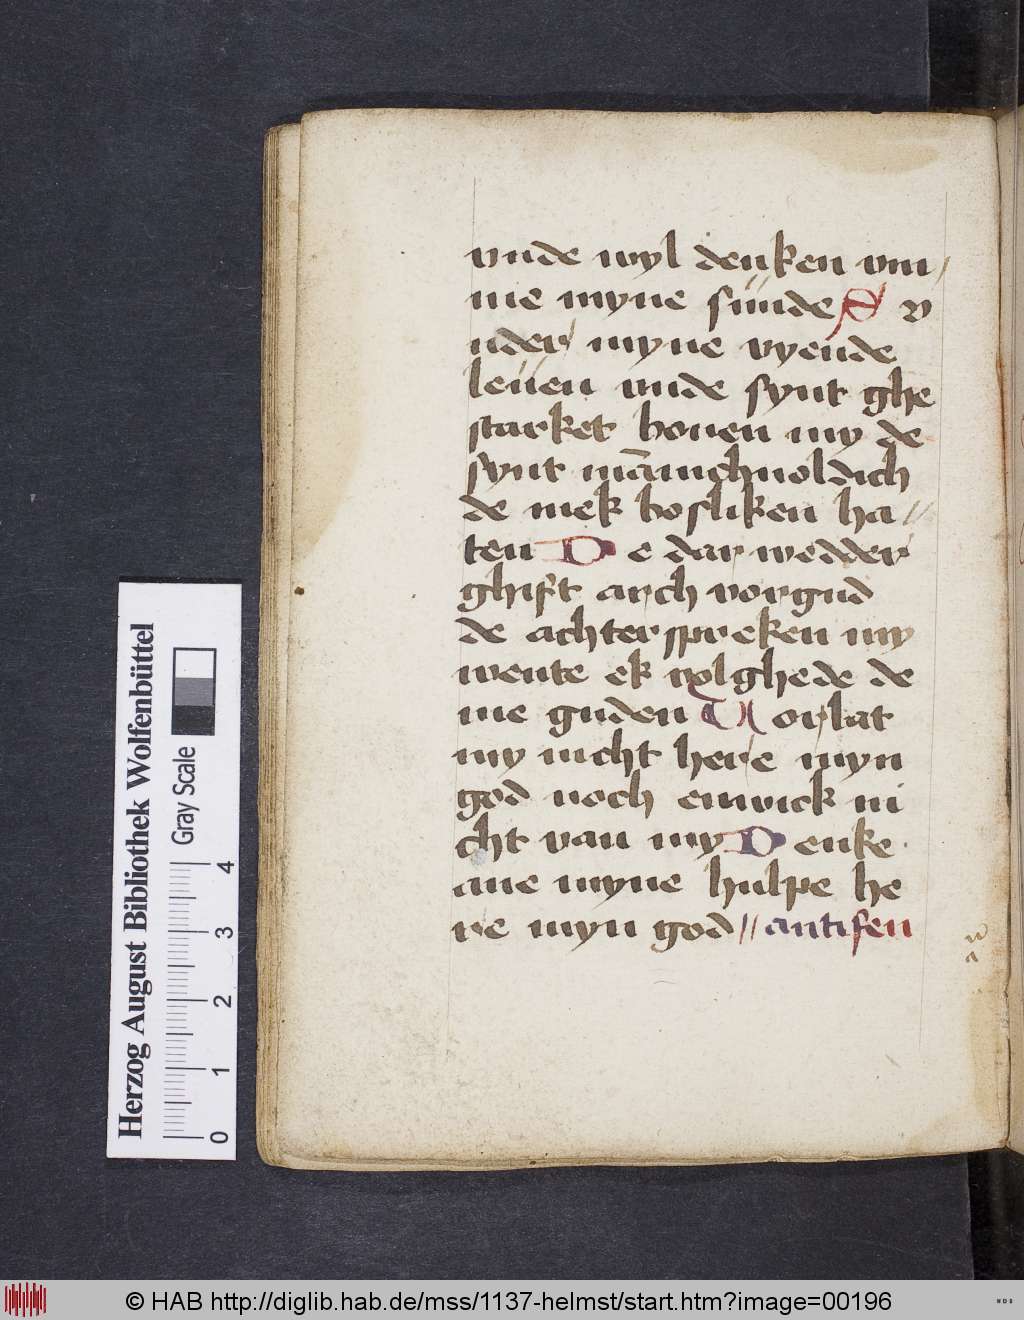 vnde wyl denken vm/
me myne sunde S v
nder myne vyende
leuen vnde synt ghe
starket bouen my de
synt mānichuoldich
de mek bosliken ha//
ten D e dar wedder
ghift arch vorgud
de achterspreken my
wente ek volghede de
me guden V orlat
my nicht here myn
god noch enwick ni
cht van my D enke
ane myne hulpe he
re myn god // antifen
Herzog August Bibliothek Wolfenbüttel
Gray Scale
0 1 2 3 4
© HAB http://diglib.hab.de/mss/1137-helmst/start.htm?image=00196